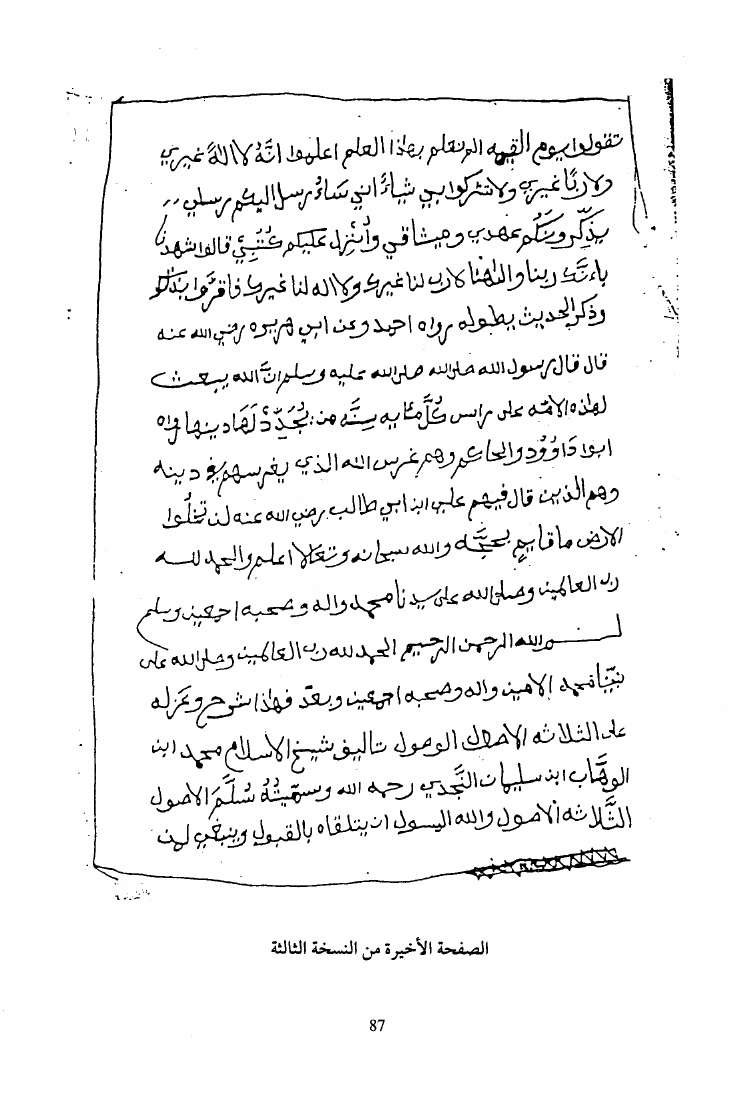 تقولوا يوم القيمه الم نعلم بهاذا العلم اعلموا انّهُ لا الٰهَ غيري
ولا ربّاً غيري ولا تشركوا بي شياءً اني سَاءُرسل اليكم رسلي
يذكّرونكم عهدي وميثاقي وأُنْزِل عليكم كُتُبِيّ قالوا شهدنا
باءنّك ربنا والٰهنا لا رب لنا غيرك ولا اله لنا غيرك فاقرّوا بذالك
وذكر الحديث بطوله رواه احمد وعن ابي هريره رضي الله عنه
قال قال رسول الله صلى الله صلى الله عليه وسلم انّ الله يبعث
لهٰذه الامّه على راس كُلِّ مئايه سنّه من يُجَدِّدُ لَهَا دينها رواه
ابوا داوُود والحاكم وهم غرس الله الذي يغرسهم في دينه
وهم الذين قال فيهم علي ابن ابي طالب رضي الله عنه لن تخلُوا
الارض من قايمٍ بحجّته والله سبحانه وتعالا اعلم والحمد لله
رب العالمين وصلى الله على سيدنا محمد واله وصحبه اجمعين وسلم
بسم الله الرحمن الرحيم الحمد لله رب العالمين وصلى الله على
نبيّنا محمد الامين واله وصحبه اجمعين وبعد فهٰذا شرح وعزله
على الثلاثه الاصول الوصول تاليف شيخ الاسلام محمد ابن
الوهّاب ابن سليمان النّجدي رحمه الله وسمّيتُهُ سُلّم الاصول
الثّلاثه الاصول والله المسول ان يتلقاه بالقبول وينبغي لمن
الصفحة الأخيرة من النسخة الثالثة
87